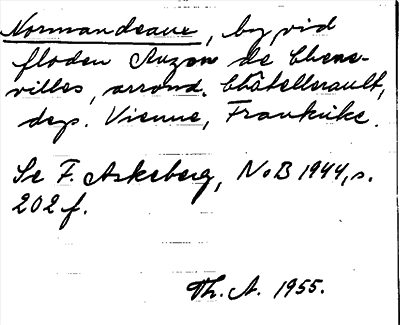 Normandeaux, by vid
floden Auzon de Chene-
villes, arrond. Châtellerault,
dep. Vienne, Frankrike.
Se F. Askeberg, NoB 1944, s.
202 f.
Th. A. 1955.